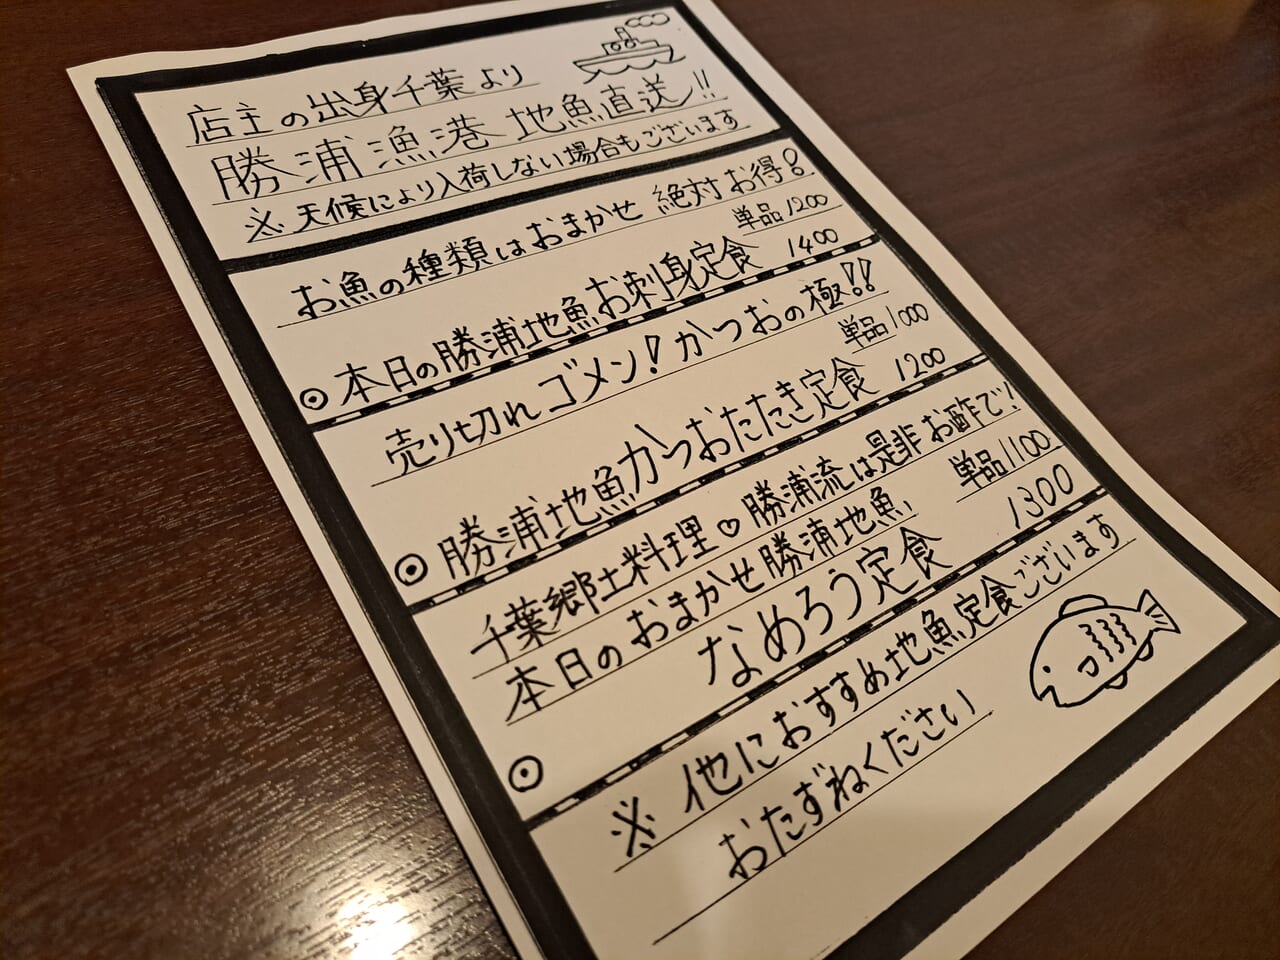 店主の出身千葉より
勝浦漁港 地魚直送!!
※天候により入荷しない場合もございます
お魚の種類はおまかせ 絶対お得!
単品1200
◎本日の勝浦地魚お刺身定食 1400
売り切れゴメン!かつおの極!!
単品1000
◎勝浦地魚かつおたたき定食 1200
千葉郷土料理♡勝浦流は是非お酢で!
本日のおまかせ勝浦地魚 単品1100
◎なめろう定食 1300
※他におすすめ地魚定食ございます
おたずねください